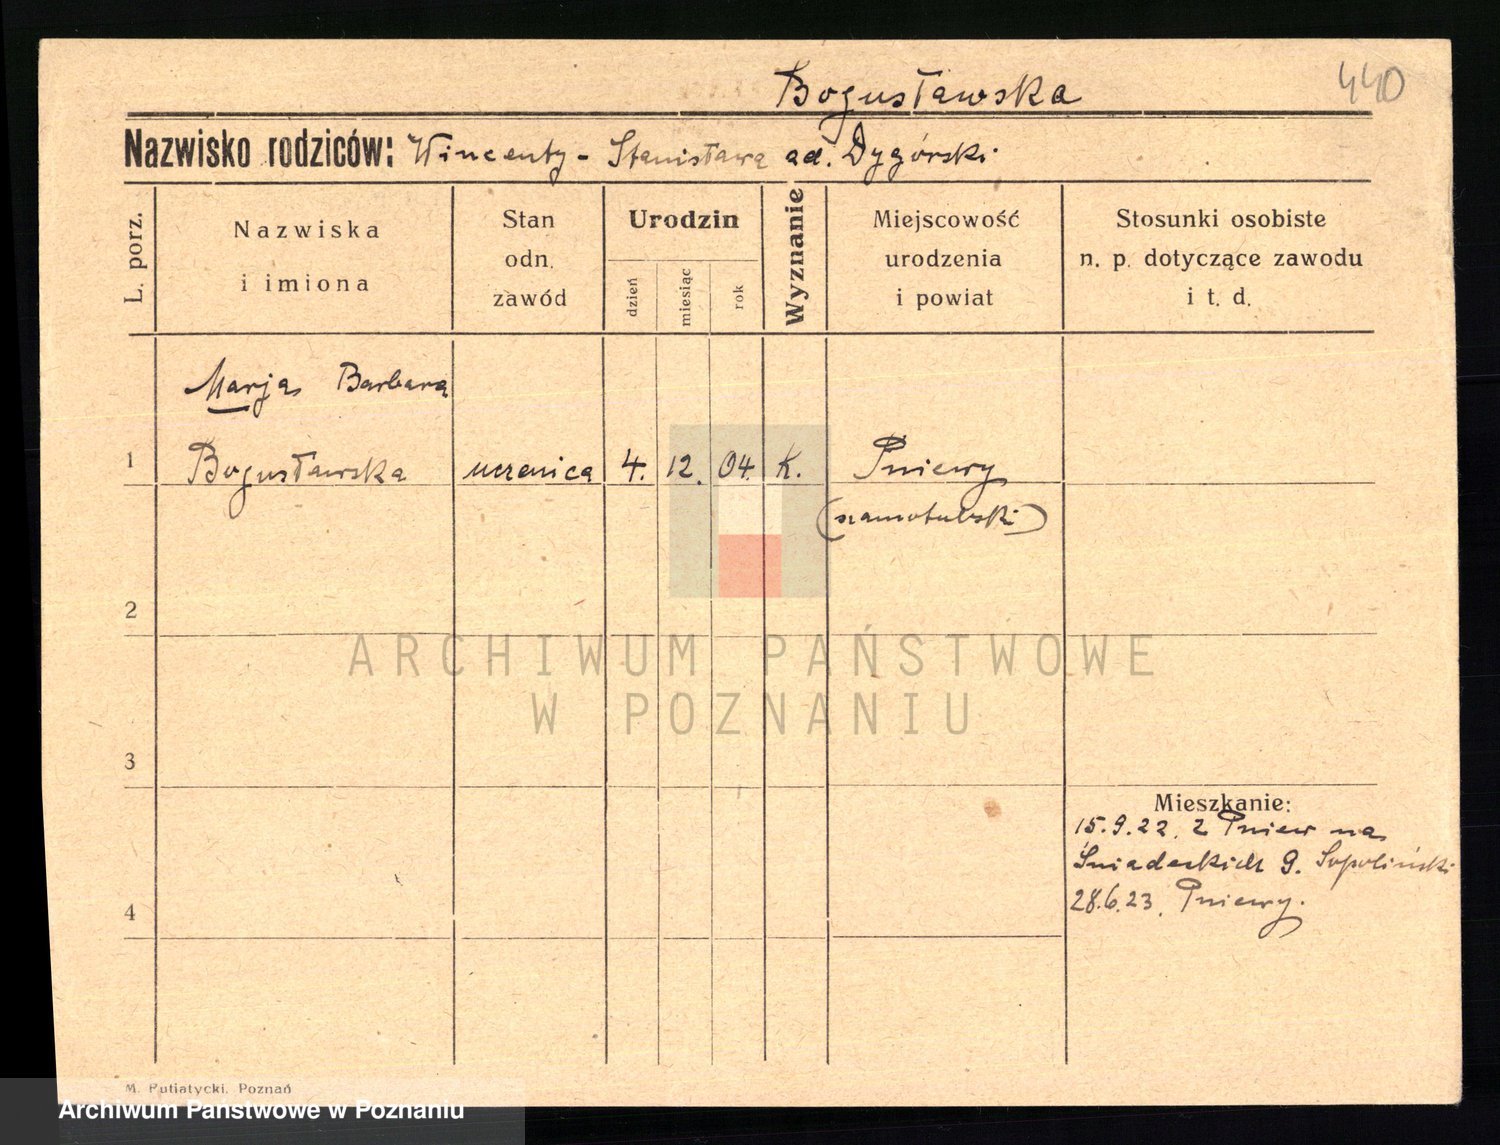 440
Bogusławska
Nazwisko rodziców: Wincenty - Stanisława ad. Dygórski
L. porz.
Nazwiska
i imiona
Stan
odn.
zawód
Urodzin
dzień
miesiąc
rok
Wyznanie
Miejscowość
urodzenia
i powiat
Stosunki osobiste
n. p. dotyczące zawodu
i t. d.
Marja Barbara
1 Bogusławska uczenica 4. 12. 04. K. Pniewy
(szamotulski)
2
ARCHIWUM PAŃSTWOWE
W POZNANIU
3
Mieszkanie:
15.9.22. z Pniew na
Śniadeckich 9. Sopoliński
4 28.6.23. Pniewy.
M. Putiatycki, Poznań
Archiwum Państwowe w Poznaniu